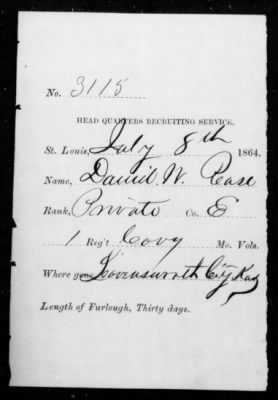 No. 3115
HEAD QUARTERS RECRUITING SERVICE,
St. Louis, July 8th 1864.
Name, Daniel W. Pease
Rank, Private Co. E
1 Reg't Cavy Mo. Vols.
Where gone, Leavenworth City Kas
Length of Furlough, Thirty days.